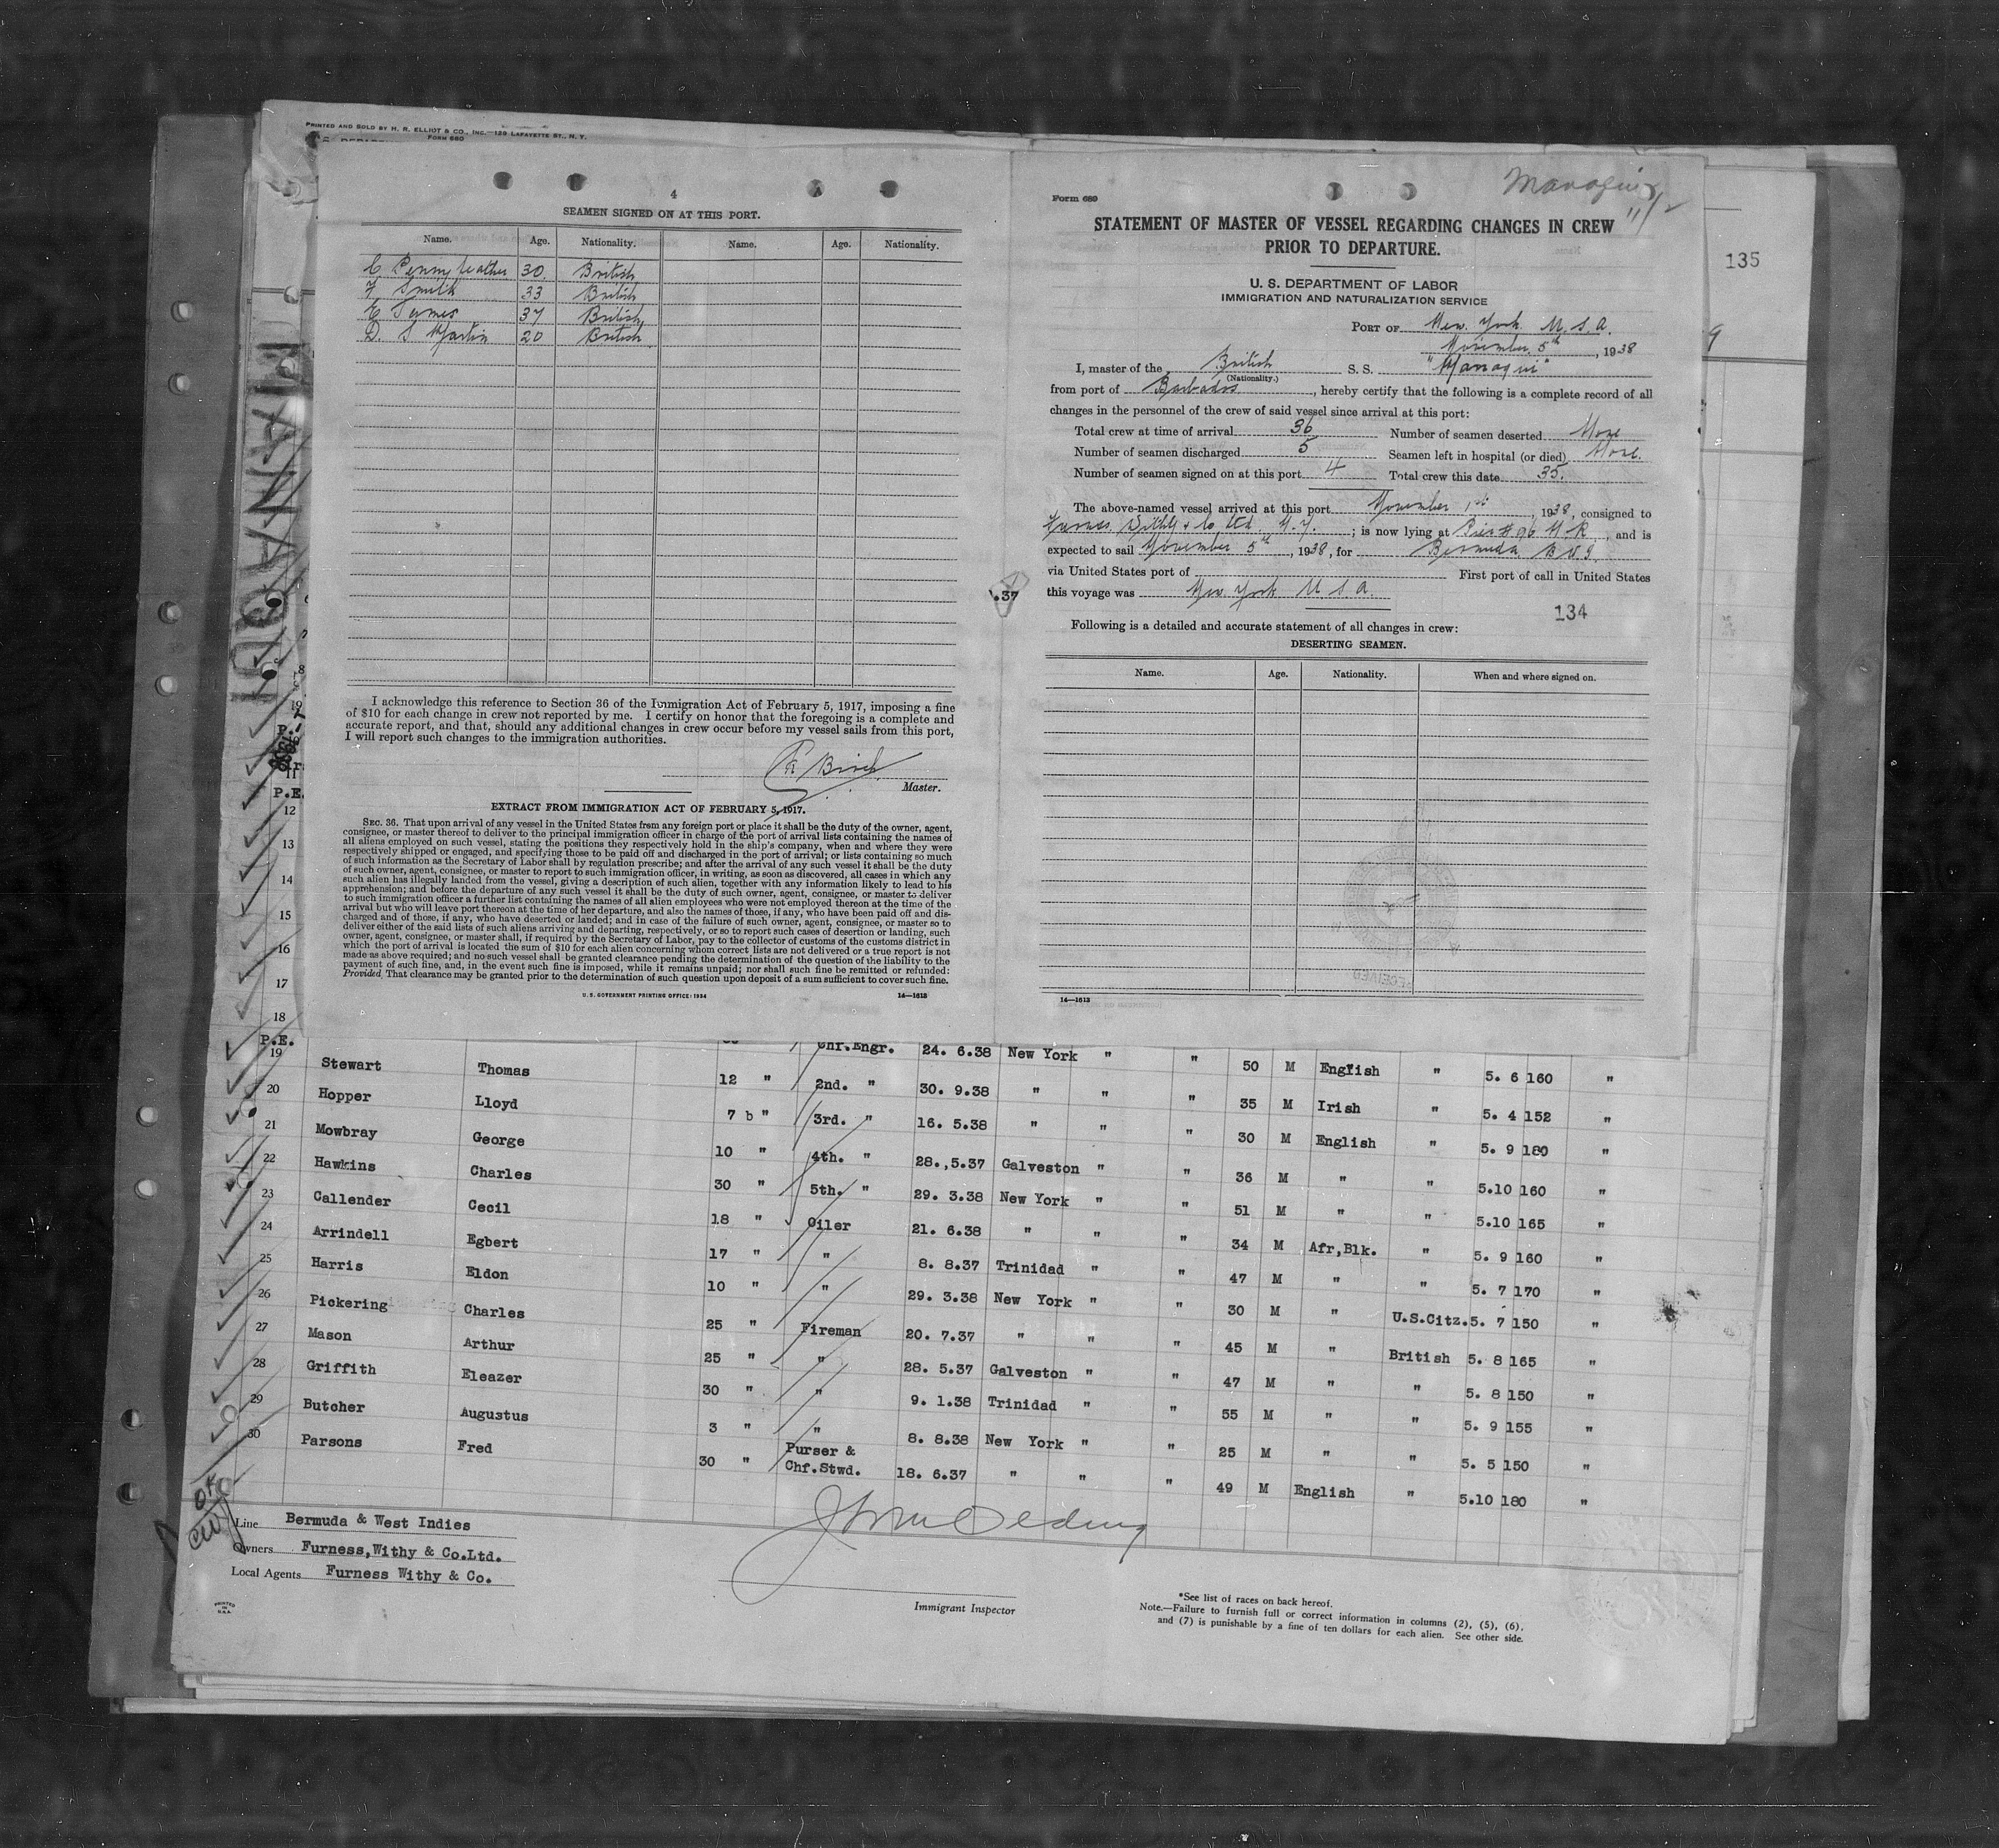 PRINTED AND SOLD BY H. R. ELLIOT & CO., INC.—129 LAFAYETTE ST., N. Y.
FORM 680
4
SEAMEN SIGNED ON AT THIS PORT.
Name. Age. Nationality. Name. Age. Nationality.
C Pennyfeather 30. British
F. Smith 33 British
C James 37 British
D. S Martin 20 British
I acknowledge this reference to Section 36 of the Immigration Act of February 5, 1917, imposing a fine
of $10 for each change in crew not reported by me. I certify on honor that the foregoing is a complete and
accurate report, and that, should any additional changes in crew occur before my vessel sails from this port,
I will report such changes to the immigration authorities.
Birch
Master.
EXTRACT FROM IMMIGRATION ACT OF FEBRUARY 5, 1917.
SEC. 36. That upon arrival of any vessel in the United States from any foreign port or place it shall be the duty of the owner, agent,
consignee, or master thereof to deliver to the principal immigration officer in charge of the port of arrival lists containing the names of
all aliens employed on such vessel, stating the positions they respectively hold in the ship's company, when and where they were
respectively shipped or engaged, and specifying those to be paid off and discharged in the port of arrival; or lists containing so much
of such information as the Secretary of Labor shall by regulation prescribe; and after the arrival of any such vessel it shall be the duty
of such owner, agent, consignee, or master to report to such immigration officer, in writing, as soon as discovered, all cases in which any
such alien has illegally landed from the vessel, giving a description of such alien, together with any information likely to lead to his
apprehension; and before the departure of any such vessel it shall be the duty of such owner, agent, consignee, or master to deliver
to such immigration officer a further list containing the names of all alien employees who were not employed thereon at the time of the
arrival but who will leave port thereon at the time of her departure, and also the names of those, if any, who have been paid off and dis-
charged and of those, if any, who have deserted or landed; and in case of the failure of such owner, agent, consignee, or master so to
deliver either of the said lists of such aliens arriving and departing, respectively, or so to report such cases of desertion or landing, such
owner, agent, consignee, or master shall, if required by the Secretary of Labor, pay to the collector of customs of the customs district in
which the port of arrival is located the sum of $10 for each alien concerning whom correct lists are not delivered or a true report is not
made as above required; and no such vessel shall be granted clearance pending the determination of the question of the liability to the
payment of such fine, and, in the event such fine is imposed, while it remains unpaid; nor shall such fine be remitted or refunded:
Provided, That clearance may be granted prior to the determination of such question upon deposit of a sum sufficient to cover such fine.
U.S. GOVERNMENT PRINTING OFFICE: 1934 14—1613
Managui
11/2
Form 689
STATEMENT OF MASTER OF VESSEL REGARDING CHANGES IN CREW
PRIOR TO DEPARTURE.
U. S. DEPARTMENT OF LABOR
IMMIGRATION AND NATURALIZATION SERVICE
PORT OF New York U.S.A.
November 5th, 1938
I, master of the British S. S. "Managui"
(Nationality.)
from port of Barbados, hereby certify that the following is a complete record of all
changes in the personnel of the crew of said vessel since arrival at this port:
Total crew at time of arrival 36 Number of seamen deserted None
Number of seamen discharged 5 Seamen left in hospital (or died) None.
Number of seamen signed on at this port 4 Total crew this date 35.
The above-named vessel arrived at this port November 1st, 1938, consigned to
Furness Withy & Co Ltd. N.Y.; is now lying at Pier # 96 N.R, and is
expected to sail November 5th, 1938, for Bermuda B W I.
via United States port of First port of call in United States
this voyage was New York U S A.
134
Following is a detailed and accurate statement of all changes in crew:
DESERTING SEAMEN.
Name. Age. Nationality. When and where signed on.
14—1613
135
9
.37
MANAQUI
P.E.
12
13
14
15
16
17
18
P.E.
19 Stewart Thomas Chf.Engr. 24. 6.38 New York " " 50 M English " 5. 6 160 "
20 Hopper Lloyd 12 " 2nd. " 30. 9.38 " " " 35 M Irish " 5. 4 152 "
21 Mowbray George 7 b " 3rd. " 16. 5.38 " " " 30 M English " 5. 9 180 "
22 Hawkins Charles 10 " 4th. " 28.,5.37 Galveston " " 36 M " " 5.10 160 "
23 Callender Cecil 30 " 5th. " 29. 3.38 New York " " 51 M " " 5.10 165 "
24 Arrindell Egbert 18 " Oiler 21. 6.38 " " " 34 M Afr,Blk. " 5. 9 160 "
25 Harris Eldon 17 " " 8. 8.37 Trinidad " " 47 M " " 5. 7 170 "
26 Pickering Charles 10 " " 29. 3.38 New York " " 30 M " U.S.Citz. 5. 7 150 "
27 Mason Arthur 25 " Fireman 20. 7.37 " " " 45 M " British 5. 8 165 "
28 Griffith Eleazer 25 " " 28. 5.37 Galveston " " 47 M " " 5. 8 150 "
29 Butcher Augustus 30 " " 9. 1.38 Trinidad " " 55 M " " 5. 9 155 "
30 Parsons Fred 3 " " 8. 8.38 New York " " 25 M " " 5. 5 150 "
30 " Purser & Chf.Stwd. 18. 6.37 " " " 49 M English " 5.10 180 "
OK
Line Bermuda & West Indies
Owners Furness,Withy & Co.Ltd.
Local Agents Furness Withy & Co.
PRINTED IN U.S.A.
Immigrant Inspector
*See list of races on back hereof.
Note.—Failure to furnish full or correct information in columns (2), (5), (6).
and (7) is punishable by a fine of ten dollars for each alien. See other side.